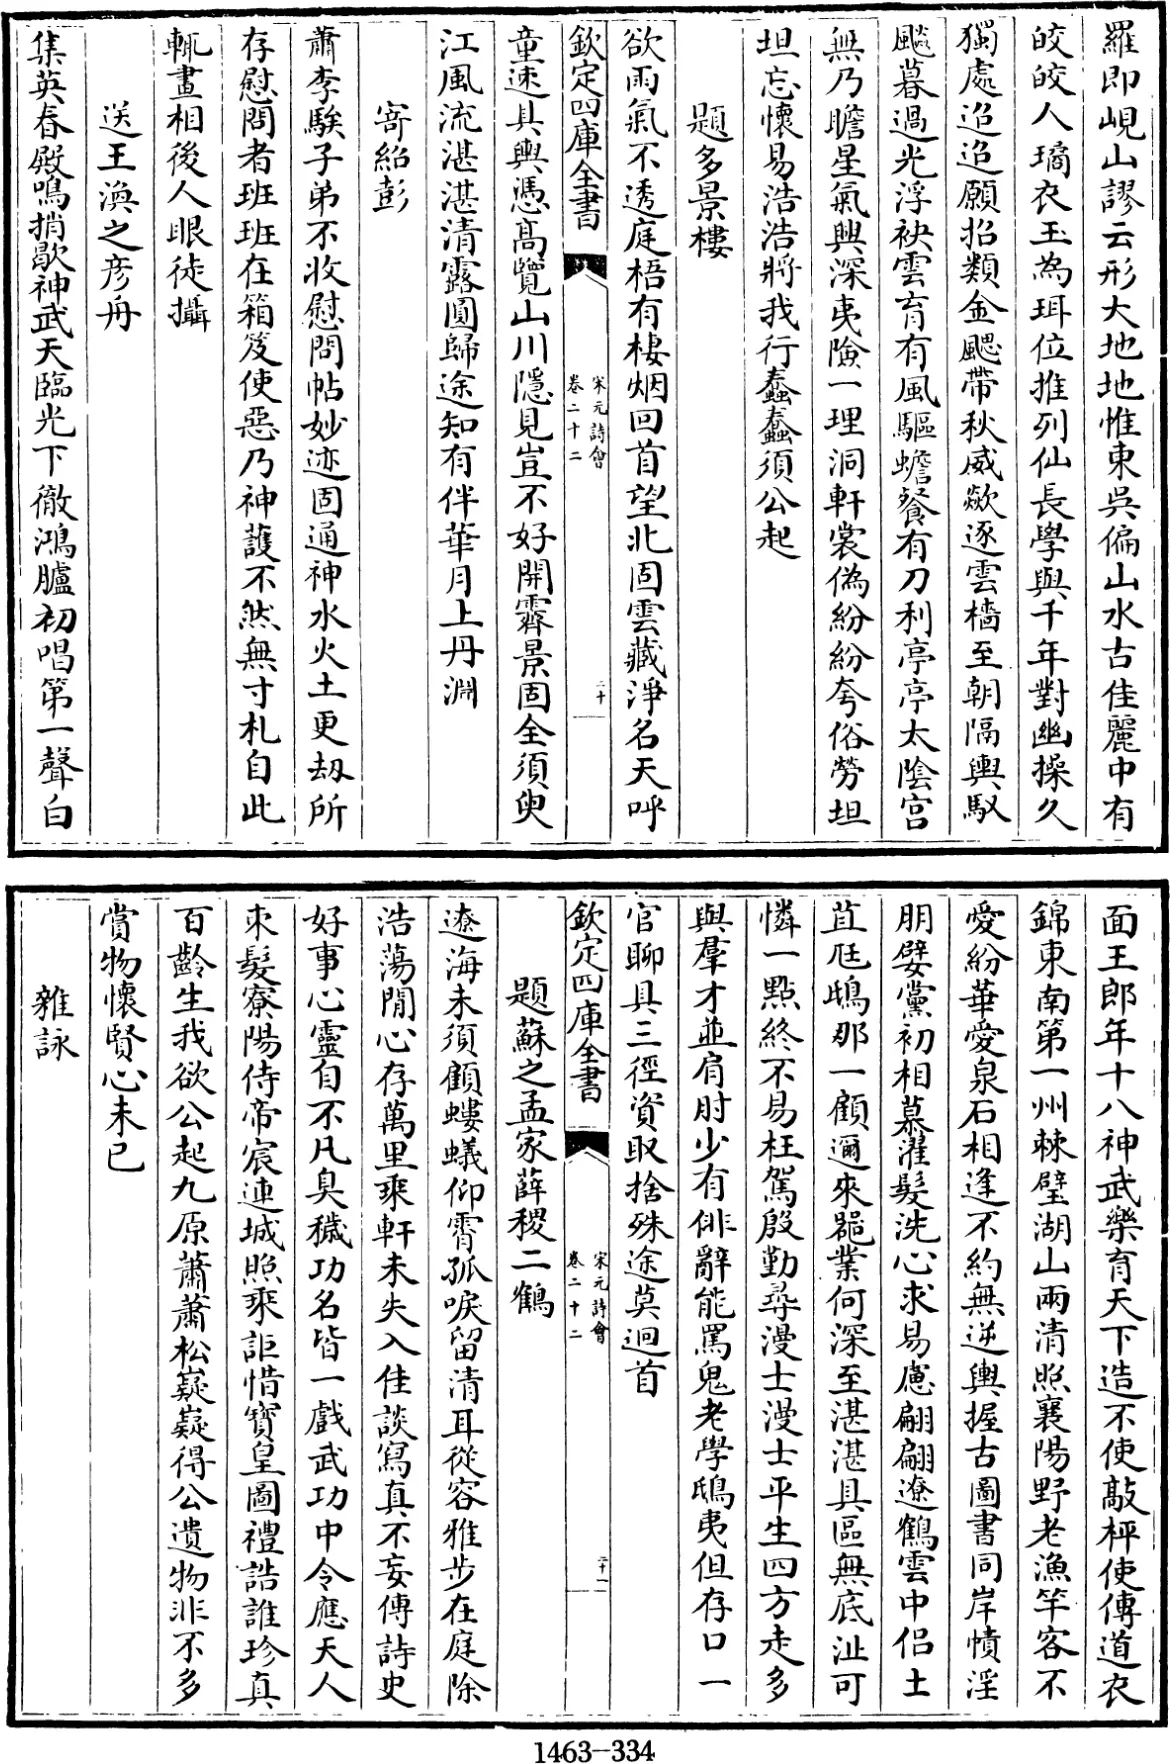 羅即峴山謬云形大地地惟東吳偏山水古佳麗中有
皎皎人璚衣玉為珥位推列仙長學與千年對幽操久
獨處迨迨願招類金颸帶秋威歘逐雲檣至朝隮輿馭
飈暮過光浮袂雲育有風驅蟾餮有刀利亭亭太陰宫
無乃瞻星氣興深夷險一理洞軒裳偽紛紛夸俗勞坦
坦忘懷易浩浩將我行蠢蠢須公起
題多景樓
欲雨氣不透庭梧有棲烟回首望北固雲藏淨名天呼
欽定四庫全書
宋元詩會
卷二十二
二十
童速具輿憑高覽山川隱見豈不好開霽景固全須臾
江風流湛湛清露圓歸途知有伴華月上丹淵
寄紹彭
蕭李騃子弟不收慰問帖妙迹固通神水火土更刼所
存慰問者班班在箱笈使惡乃神護不然無寸札自此
輒畫相後人眼徒攝
送王渙之彦舟
集英春殿鳴捎歇神武天臨光下徹鴻臚初唱第一聲白
面王郎年十八神武樂育天下造不使敲枰使傳道衣
錦東南第一州棘璧湖山兩清照襄陽野老漁竿客不
愛紛華愛泉石相逢不約無逆輿握古圖書同岸幘淫
朋嬖黨初相慕濯髮洗心求易慮翩翩遼鶴雲中侣土
苴尫鴟那一顧邇來器業何深至湛湛具區無底沚可
憐一點終不易枉駕殷勤尋漫士漫士平生四方走多
與羣才並肩肘少有俳辭能罵鬼老學鴟夷但存口一
官聊具三徑資取捨殊途莫迴首
欽定四庫全書
宋元詩會
卷二十二
二十一
題蘇之孟家薛稷二鶴
遼海未須顧螻蟻仰霄孤唳留清耳從容雅步在庭除
浩蕩閒心存萬里乘軒未失入佳談寫真不妄傳詩史
好事心靈自不凡臭穢功名皆一戲武功中令應天人
束髮寮陽侍帝宸連城照乘詎惜寶皇圖禮誥誰珍真
百齡生我欲公起九原蕭蕭松嶷嶷得公遺物非不多
賞物懷賢心未已
雜詠
1463-334